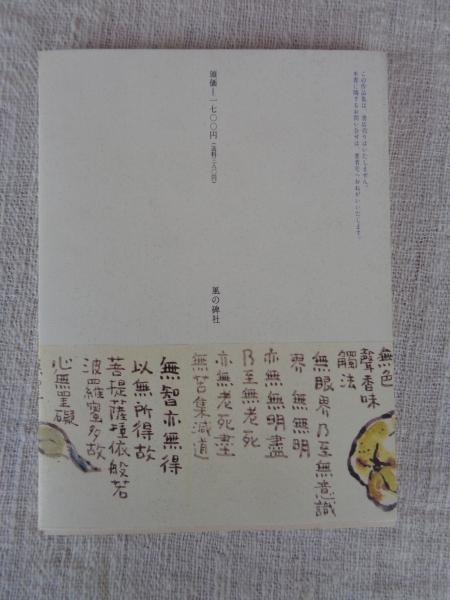 この作品集は、書店売りはいたしません。
本書に関するお問い合せは、著者宅へおねがいいたします。
頒価―一七〇〇円
風の碑社
無色
聲香味
觸法
無眼界乃至無意識
界 無無明
亦無無明盡
乃至無老死
亦無老死盡
無苦集滅道
無智亦無得
以無所得故
菩提薩埵依般若
波羅蜜多故
心無罣礙